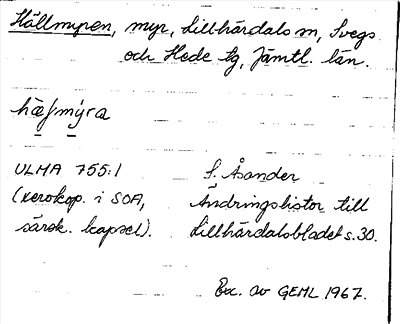 Hällmyren, myr, Lillhärdals sn, Svegs
och Hede tg, Jämtl. län.
hæ̀ʃmýra
ULMA 755:1 S. Åsander
(xerokop. i SOA, Ändringslistor till
särsk. kapsel). Lillhärdalsbladet s. 30.
Exc. av GEML 1967.